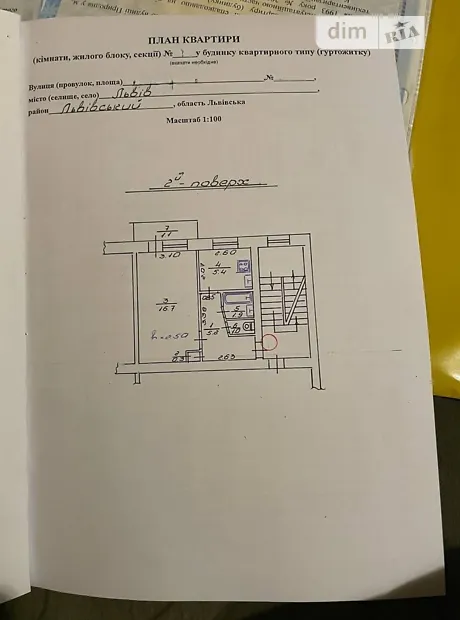 dim RIA
ПЛАН КВАРТИРИ
(кімнати, жилого блоку, секції) № у будинку квартирного типу (гуртожитку)
(вказати необхідне)
Вулиця (провулок, площа) №
місто (селище, село) Львів
район Львівський, область Львівська
Масштаб 1:100
2й - поверх
7
1.1
3.10
2.60
4
5.4
3
16.7
5
1
5.2
6
1.0
h=2.50
2
0.3
2.63